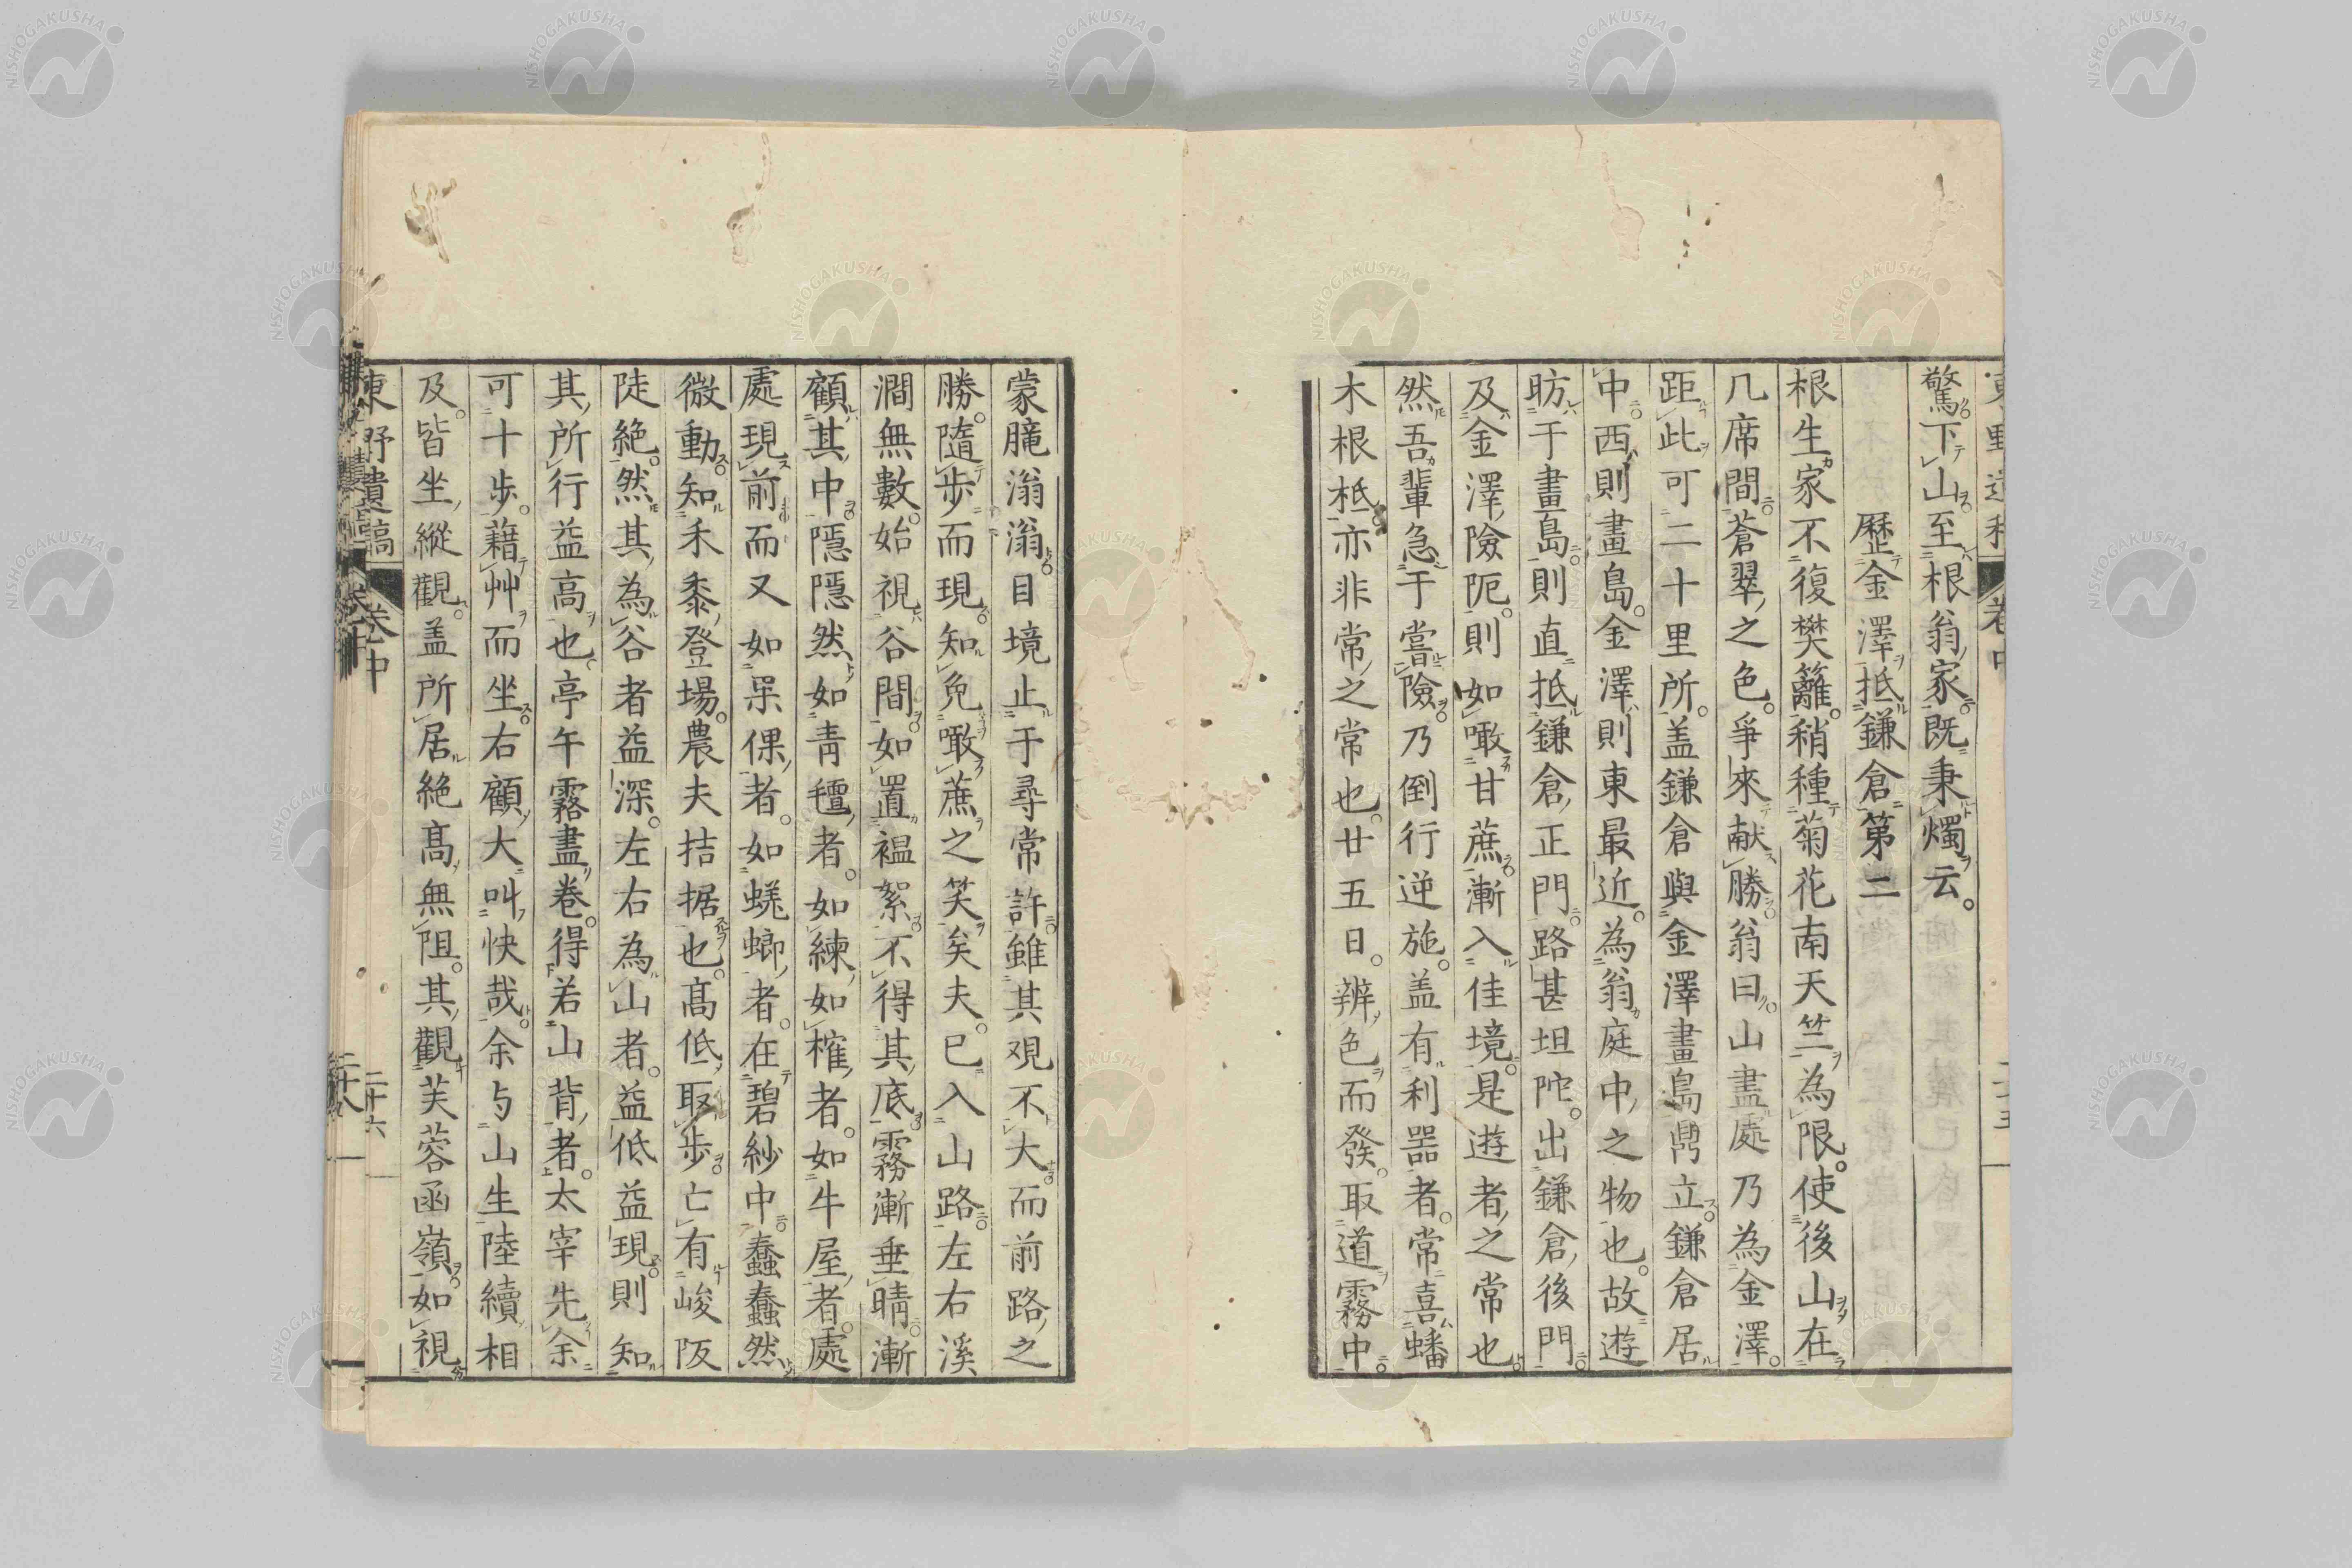 驚。下山。至根翁家。既秉燭云。
歷金澤抵鎌倉第二
根生家不復樊籬。稍種菊花南天竺為限。使後山在
几席間。蒼翠之色。爭來献勝。翁曰。山盡處乃為金澤。
距此可二十里所。盖鎌倉與金澤畫島鼎立。鎌倉居
中。西則畫島。金澤則東最近。為翁庭中之物也。故遊
昉于畫島。則直抵鎌倉正門。路甚坦陀。出鎌倉後門。
及金澤險阨。則如噉甘蔗。漸入佳境。是遊者之常也。
然吾輩急于嘗險。乃倒行逆施。盖有利器者。常喜蟠
木根柢。亦非常之常也。廿五日。辨色而發。取道霧中。
蒙朣滃滃。目境止于尋常許。雖其観不大。而前路之
勝。隨歩而現。知免噉蔗之笑矣夫。已入山路。左右溪
澗無數。始視谷間。如置褞絮。不得其底。霧漸垂晴。漸
顧其中。隱隱然如青氊者。如練如榷者。如牛屋者。處
處現前而又如杲倮者。如蜣蜋者。在碧紗中。蠢蠢然
微動。知禾黍登場。農夫拮据也。高低取歩。亡有峻阪
陡絶。然其為谷者益深。左右為山者。益低益現。則知
其所行益高也。亭午霧盡卷。得若山背者。太宰先余
可十歩。藉艸而坐。右顧大叫快哉。余与山生陸續相
及。皆坐縱觀。盖所居絶髙無阻。其觀芙蓉函嶺。如視
東野遺稿 卷中 二十六